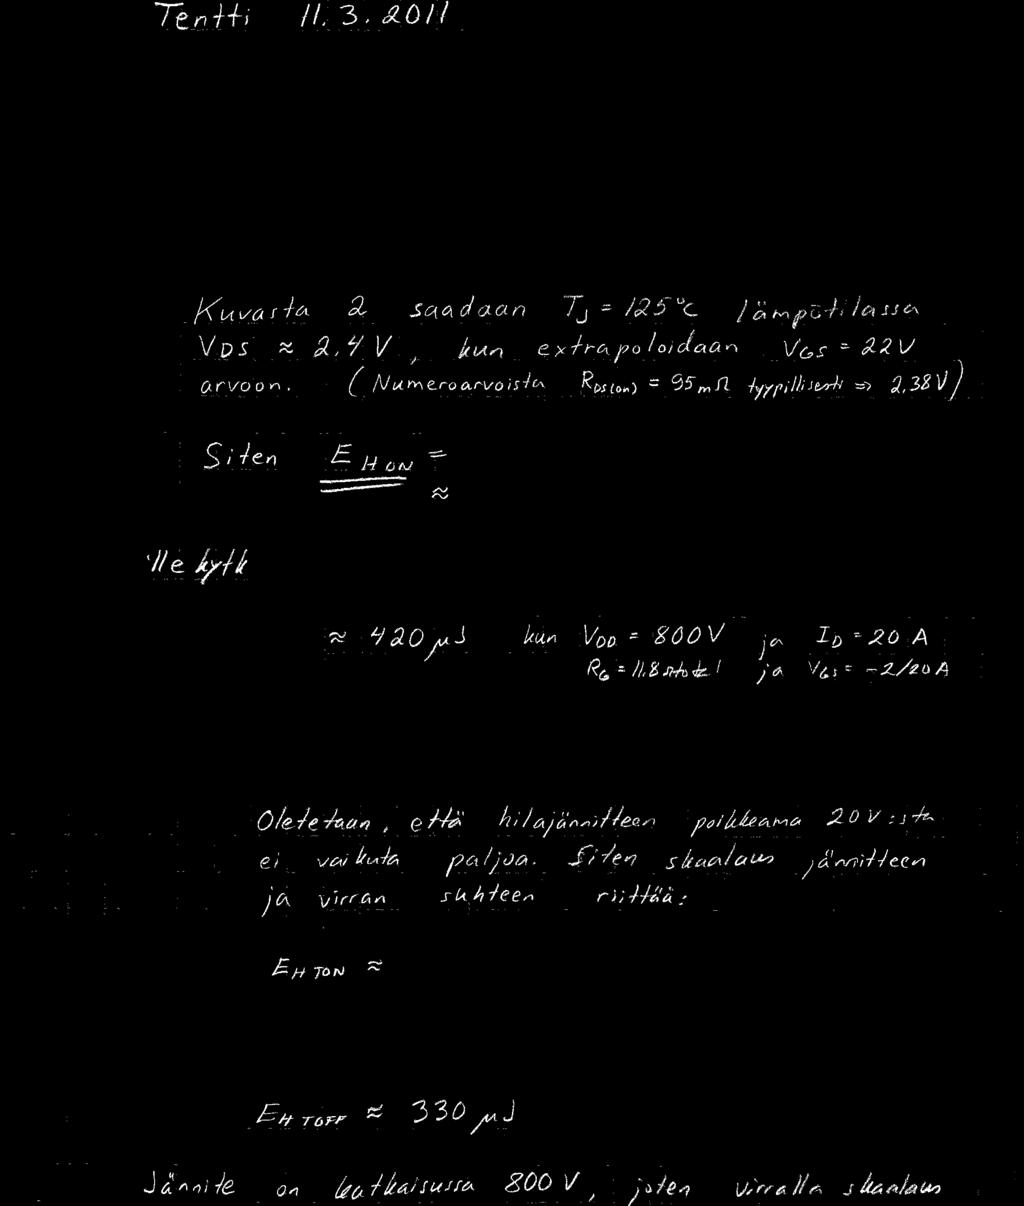 Tentti 11.3.2011
Kuvasta 2 saadaan TJ = 125°C lämpötilassa
VDS ≈ 2,4 V, kun extrapoloidaan VGS = 22V
arvoon. (Numeroarvoista RDS(on) = 95mΩ tyypillisesti => 2,38V)
Siten EHON =
≈
lle kytk
≈ 420 μJ kun VDD = 800V ja ID = 20 A
RG = 11.8 Ω total ja VGS = -2/20 A
Oletetaan, että hilajännitteen poikkeama 20V:sta
ei vaikuta paljoa. Siten skaalaus jännitteen
ja virran suhteen riittää:
EHTON ≈
EHTOFF ≈ 330 μJ
Jännite on katkaisussa 800 V, joten virralla skaalaus